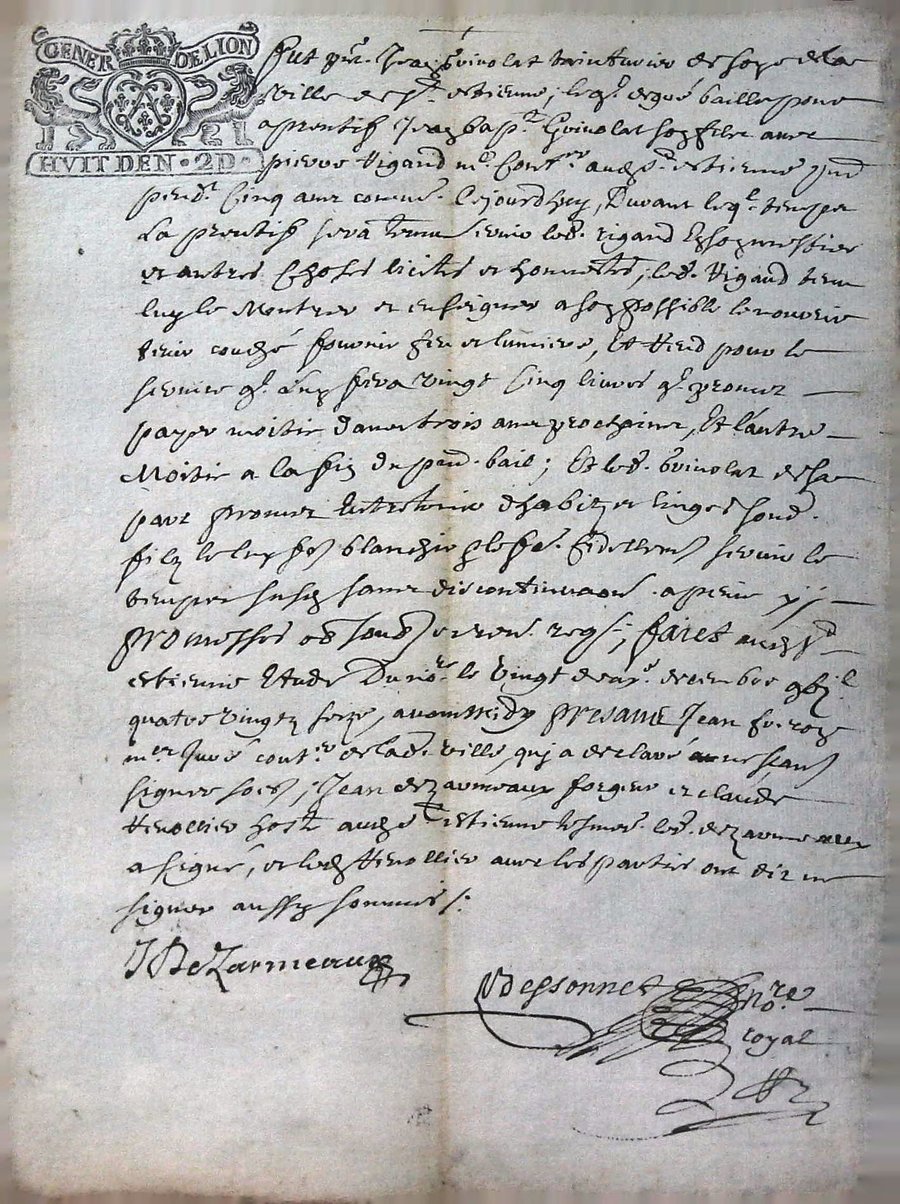 GENER DE LION
HVIT DEN · 2D ·
fut pnt. Jean Guinolat tainturier de soye de la
ville de st. estienne, leql. de gré baille pour
aprentif Jean bapt. Guinolat son filz avec
pierre Vigand me. Cout.er aud st. estienne pnt
pend. Cinq ans comme. Cejourdhuy, Durant leql. temps
La prentif sera tenu servir led. vigand En son mestier
et autres Choses licites et honnestes, led. Vigand tenu
luy le Montrer et enseigner a son possible le nourrir
tenir couché fournir feu et lumiere, Et
service ql. luy fera vingt Cinq livres ql. promet
payer moitié dans trois ans prochains, Et l'autre
Moitié a la fin du pnt. bail; Et led. Guinolat de sa
part promet Entretenir d'habitz et linges sond.
filz le luy fe blanchir fidellemt servir le
temps susd sans discontinuaon. a peine
promesses ob. soub. et ren. regs., faict aud St
estienne Etude Du nore. le Vingt decembre
quatre vingtz seze, avant Midy presant Jean
mer Juré cout.er de lad. ville, qui a declaré ne scavr
signer soe, Jean dezarmeaux forgeur et claude
Thevollier hoste aud St estienne tesmos. led. dezarmeaux
a signé, et led Thevollier avec les parties ont dit ne
signer aussy sommés /.
J Dezarmeaux
Dessonnet nore.
royal